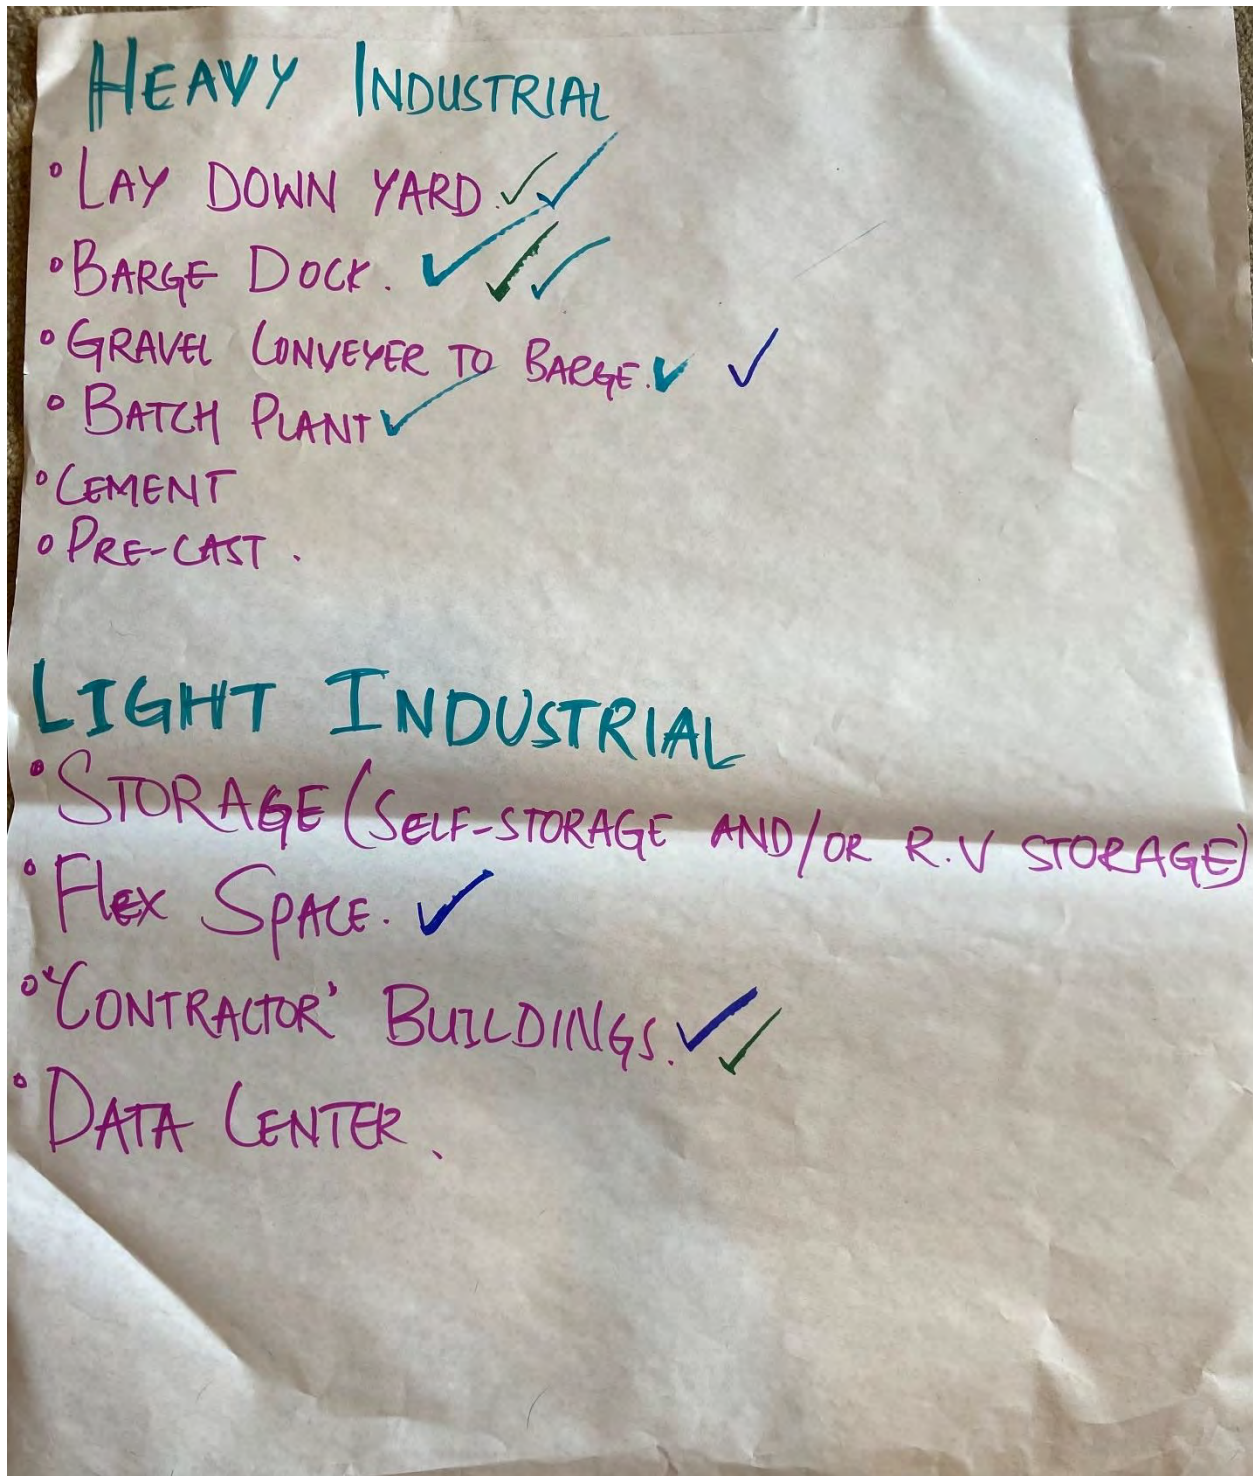 HEAVY INDUSTRIAL
° LAY DOWN YARD. ✓ ✓
° BARGE DOCK. ✓ ✓ ✓
° GRAVEL CONVEYER TO BARGE. ✓ ✓
° BATCH PLANT ✓
° CEMENT
° PRE-CAST.
LIGHT INDUSTRIAL
° STORAGE (SELF-STORAGE AND/OR R.V STORAGE)
° Flex SPACE. ✓
° "CONTRACTOR' BUILDINGS. ✓ ✓
° DATA CENTER.